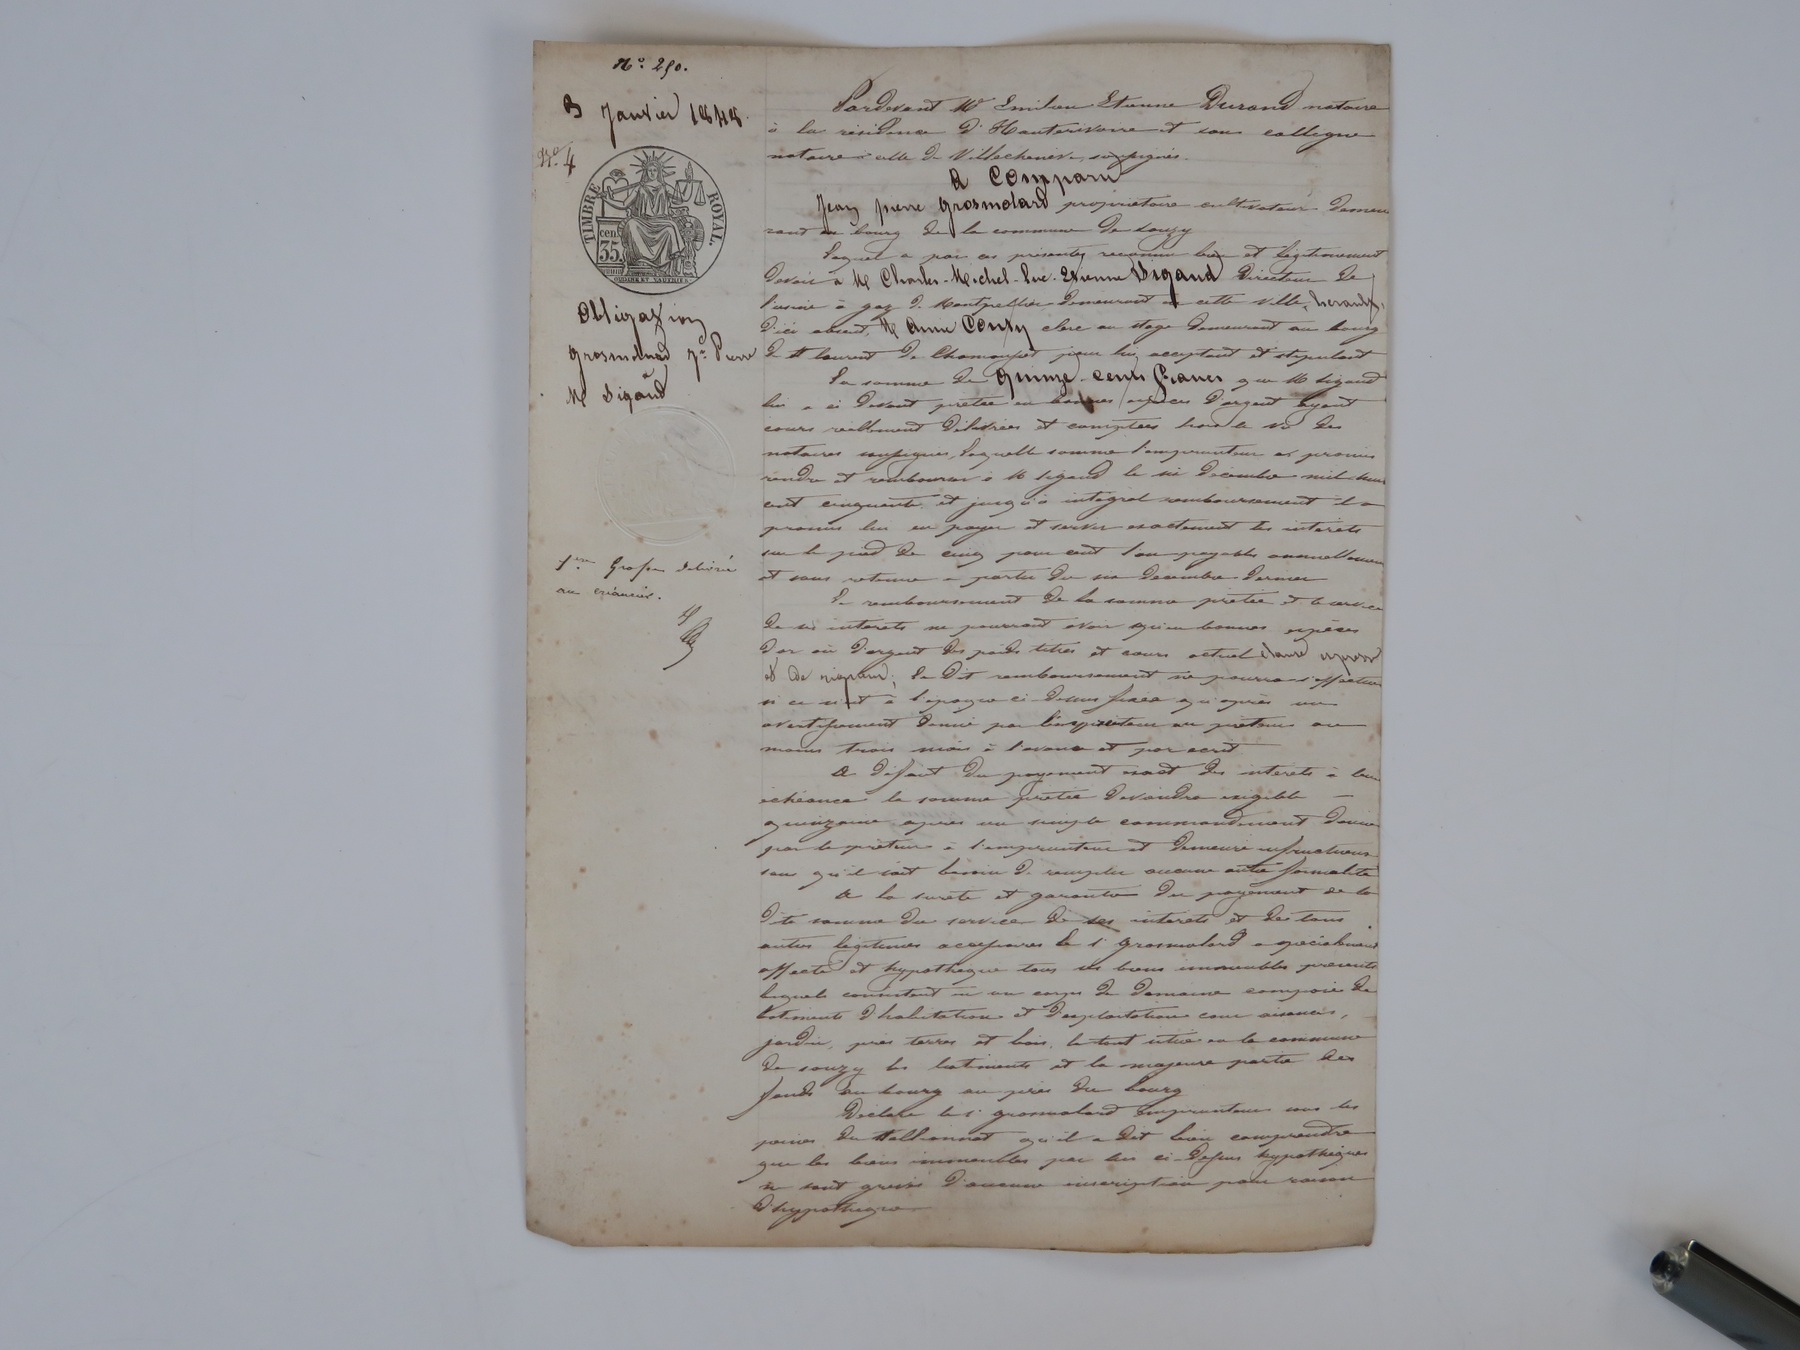 N.º 290.
3 Janvier 1848.
N.º 4
TIMBRE ROYAL.
cen.
35.
Obligation
Grosmolard Jn Pierre
à
M Sigaud
1ère Grosse délivrée
au créancier.
Pardevant Me Emilien Etienne Durand notaire
à la résidence d'Hauterivoire et son collegue
notaire à celle de Villechenève, soussignés.
A Comparu
Jean pierre Grosmolard propriétaire cultivateur demeu
rant au bourg de la commune de Souzy
Lequel a par ces présentes reconnu bien et légitimement
devoir à M Charles-Michel-Luc-Etienne Sigaud Directeur de
l'usine à gaz de Montpellier demeurant en cette ville, herault,
d'ici absent, M clerc au stage demeurant au bourg
de St laurent de Chamousset pour lui acceptant et stipulant
La somme de quinze-cents francs que M Sigaud
lui a ci devant prêtée en bonnes espèces d'argent ayant
cours réellement délivrées et comptées hors la vue des
notaires soussignés, laquelle somme l'emprunteur a promis
rendre et rembourser à M Sigaud le six décembre mil-huit
cent cinquante et jusqu'à intégral remboursement il a
promis lui en payer et servir exactement les intérets
sur le pied de cinq pour cent l'an payables annuellement
et sans retenue a partir du six décembre dernier
Le remboursement de la somme prêtée et le service
de ses interets ne pourront avoir qu'en bonnes espèces
d'or où d'argent des poids titres et cours actuel clause expresse
et de rigueur; Le dit remboursement ne pourra s'effectuer
si ce n'est à l'époque ci-dessus fixée qu'après un
avertissement donné par l'emprunteur au prêteur au
moins trois mois à l'avance et par écrit
A défaut du payement exact des interets à leur
échéance la somme prêtée deviendra exigible
quinzaine après un simple commandement donné
par le prêteur à l'emprunteur et demeuré infructueux
sans qu'il soit besoin de remplir aucune autre formalité
A la sureté et garantie du payement de la
dite somme du service de ses interets et des tous
autres légitimes accessoires le sr Grosmolard a spécialement
affecté et hypothéqué tous ses biens immeubles présents
lesquels consistent en un corps de domaine composé de
batiments d'habitation et d'exploitation cour aisances,
jardin, près terres et bois, le tout situé en la commune
de Souzy les batiments et la majeure partie des
fonds au bourg ou près du bourg
Déclare le sr grosmolard emprunteur sous les
peines du stellionnat qu'il a dit bien comprendre
que les biens immeubles par lui ci-dessus hypothéqués
ne sont grevés d'aucune inscription pour raison
d'hypothèque